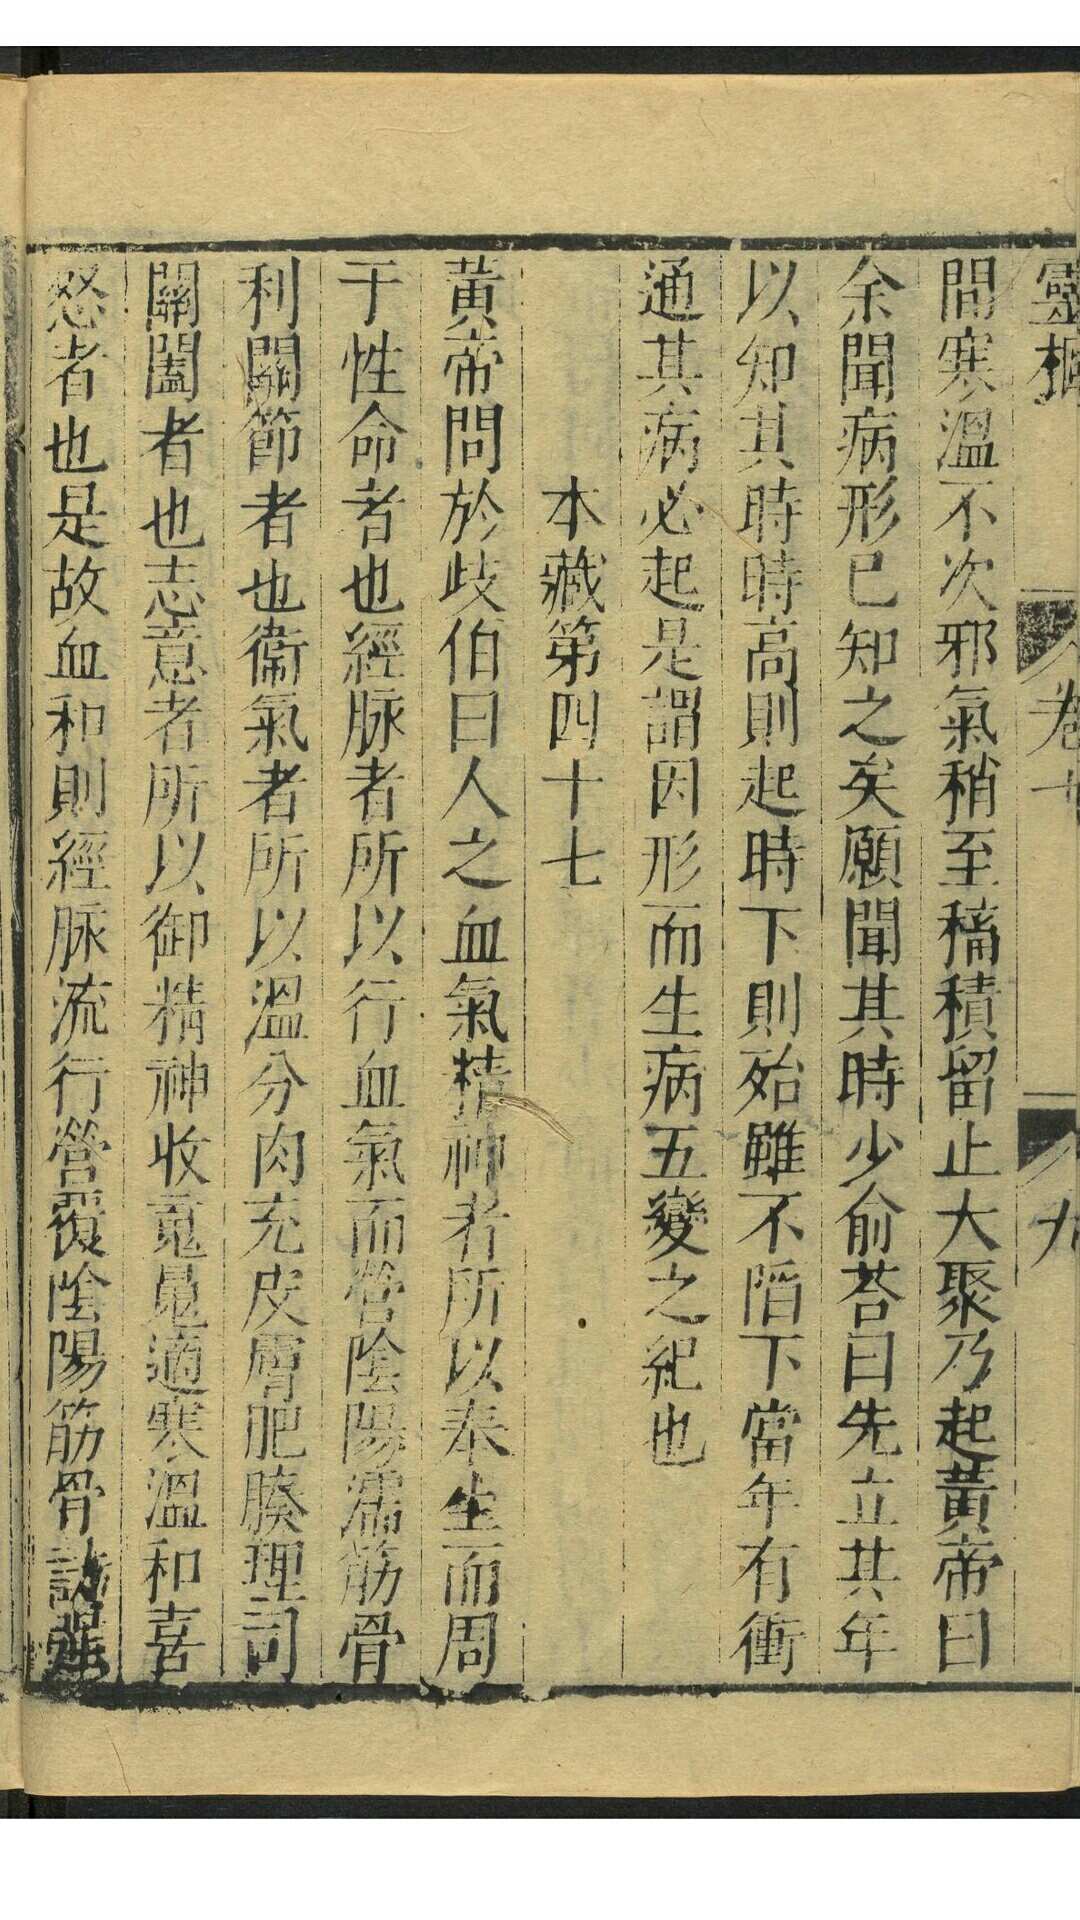 靈樞 卷七 九
間寒溫不次邪氣稍至稸積留止大聚乃起黃帝曰
余聞病形已知之矣願聞其時少俞荅曰先立其年
以知其時時高則起時下則殆雖不陷下當年有衝
通其病必起是謂因形而生病五變之紀也
本藏第四十七
黃帝問於歧伯曰人之血氣精神者所以奉生而周
于性命者也經脉者所以行血氣而營陰陽濡筋骨
利關節者也衞氣者所以溫分肉充皮膚肥腠理司
關闔者也志意者所以御精神收䰟魄適寒溫和喜
怒者也是故血和則經脉流行營覆陰陽筋骨勁强